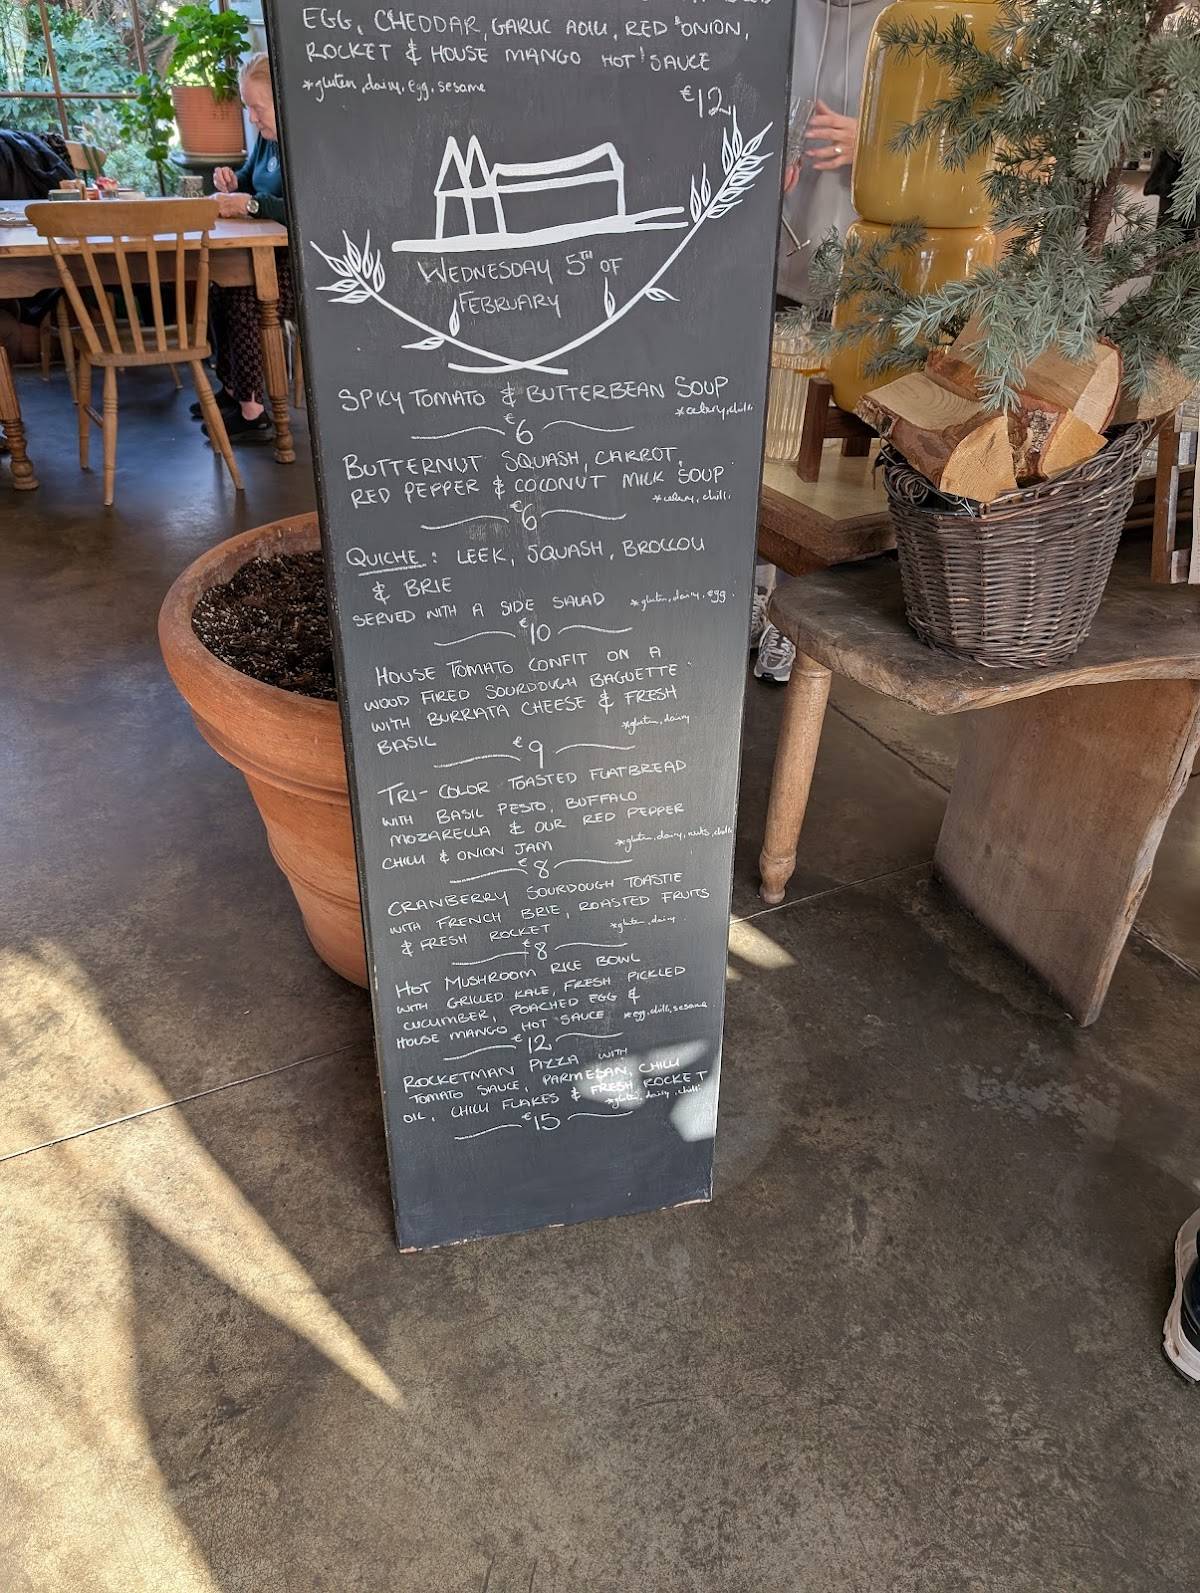 EGG, CHEDDAR, GARLIC AOILI, RED ONION,
ROCKET & HOUSE MANGO HOT SAUCE
*gluten, dairy, egg, sesame
€12
WEDNESDAY 5TH OF
FEBRUARY
SPICY TOMATO & BUTTERBEAN SOUP
*celery, chilli
€6
BUTTERNUT SQUASH, CARROT,
RED PEPPER & COCONUT MILK SOUP
*celery, chilli.
€6
QUICHE: LEEK, SQUASH, BROCCOLI
& BRIE
SERVED WITH A SIDE SALAD *gluten, dairy, egg.
€10
HOUSE TOMATO CONFIT ON A
WOOD FIRED SOURDOUGH BAGUETTE
WITH BURRATA CHEESE & FRESH
BASIL *gluten, dairy
€9
TRI-COLOR TOASTED FLATBREAD
WITH BASIL PESTO, BUFFALO
MOZARELLA & OUR RED PEPPER
CHILLI & ONION JAM *gluten, dairy, nuts, chilli
€8
CRANBERRY SOURDOUGH TOASTIE
WITH FRENCH BRIE, ROASTED FRUITS
& FRESH ROCKET *gluten, dairy.
€8
HOT MUSHROOM RICE BOWL
WITH GRILLED KALE, FRESH PICKLED
CUCUMBER, POACHED EGG &
HOUSE MANGO HOT SAUCE *egg, chilli, sesame
€12
ROCKETMAN PIZZA WITH
TOMATO SAUCE, PARMESAN, CHILLI
OIL, CHILLI FLAKES & FRESH ROCKET
*gluten, dairy, chilli
€15